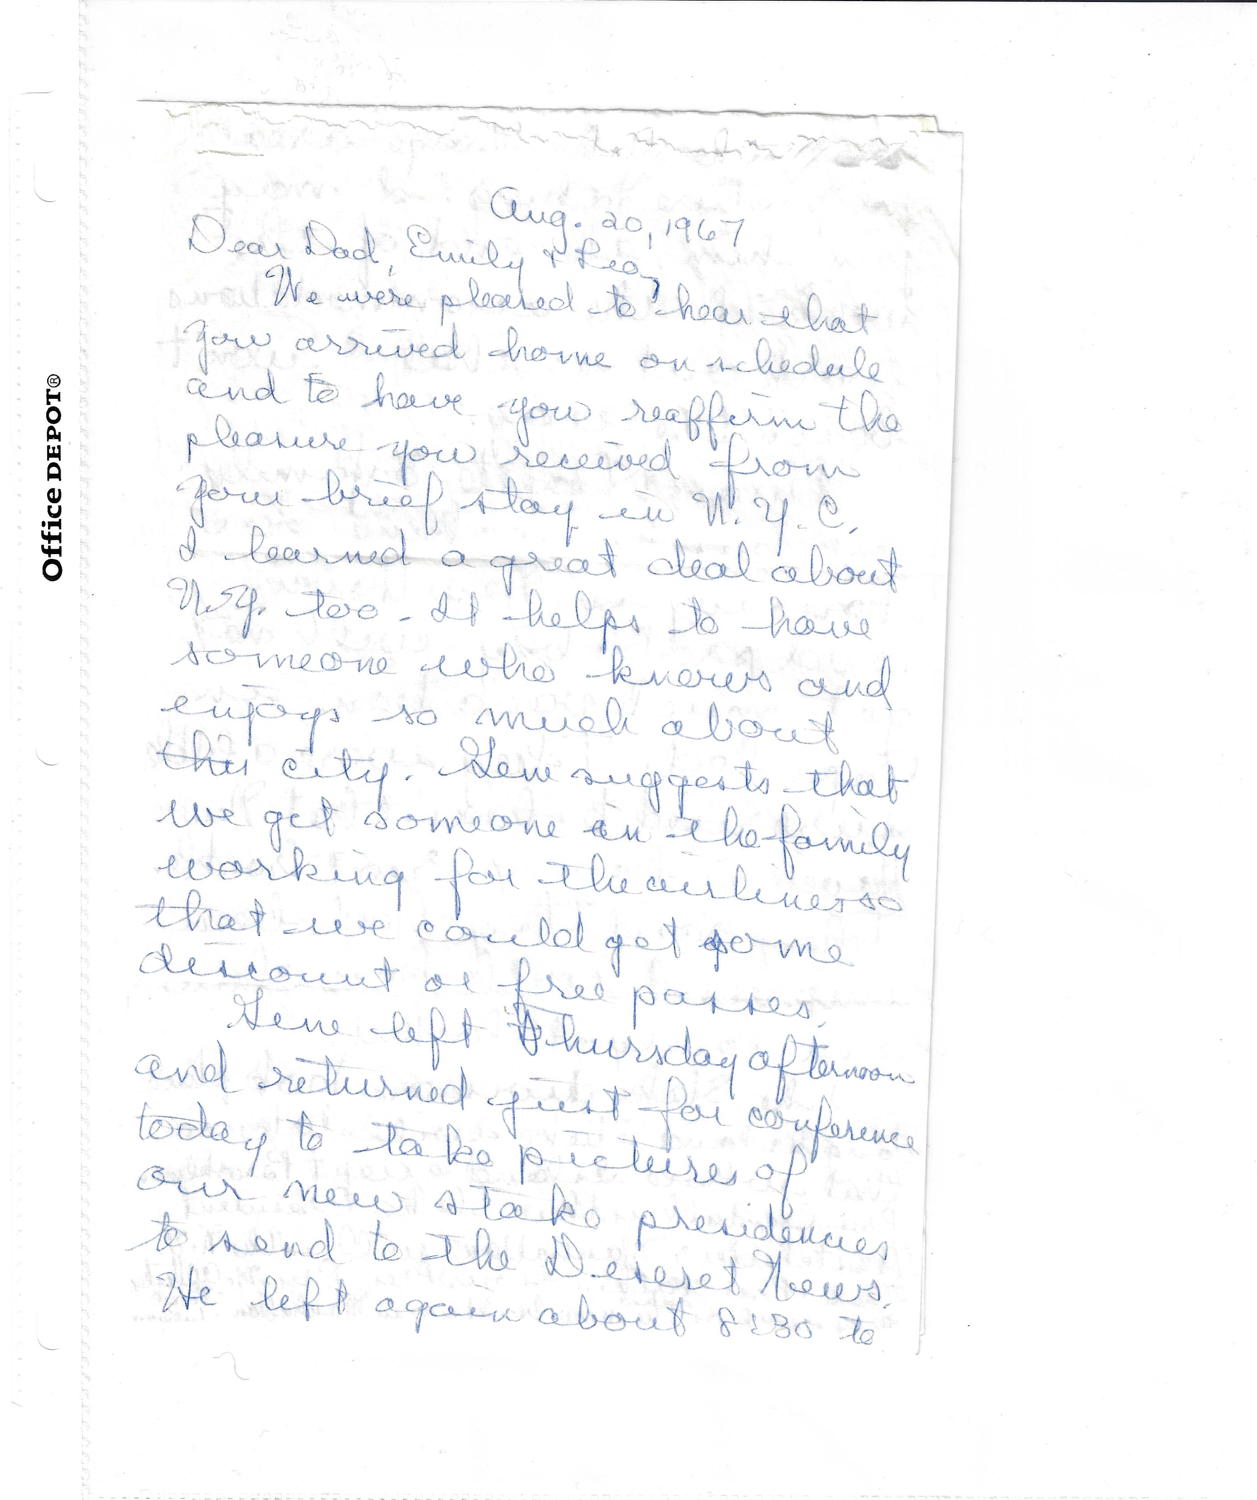 Office DEPOT®
Aug. 20, 1967
Dear Dad, Emily & Leo,
We were pleased to hear that
you arrived home on schedule
and to have you reaffirm the
pleasure you received from
your brief stay in N.Y.C.
I learned a great deal about
N.Y. too. It helps to have
someone who knows and
enjoys so much about
this city. Gene suggests that
we get someone in the family
working for the airlines so
that we could get some
discount or free passes.
Gene left Thursday afternoon
and returned just for conference
today to take pictures of
our new stake presidencies
to send to the Deseret News.
He left again about 8:30 to